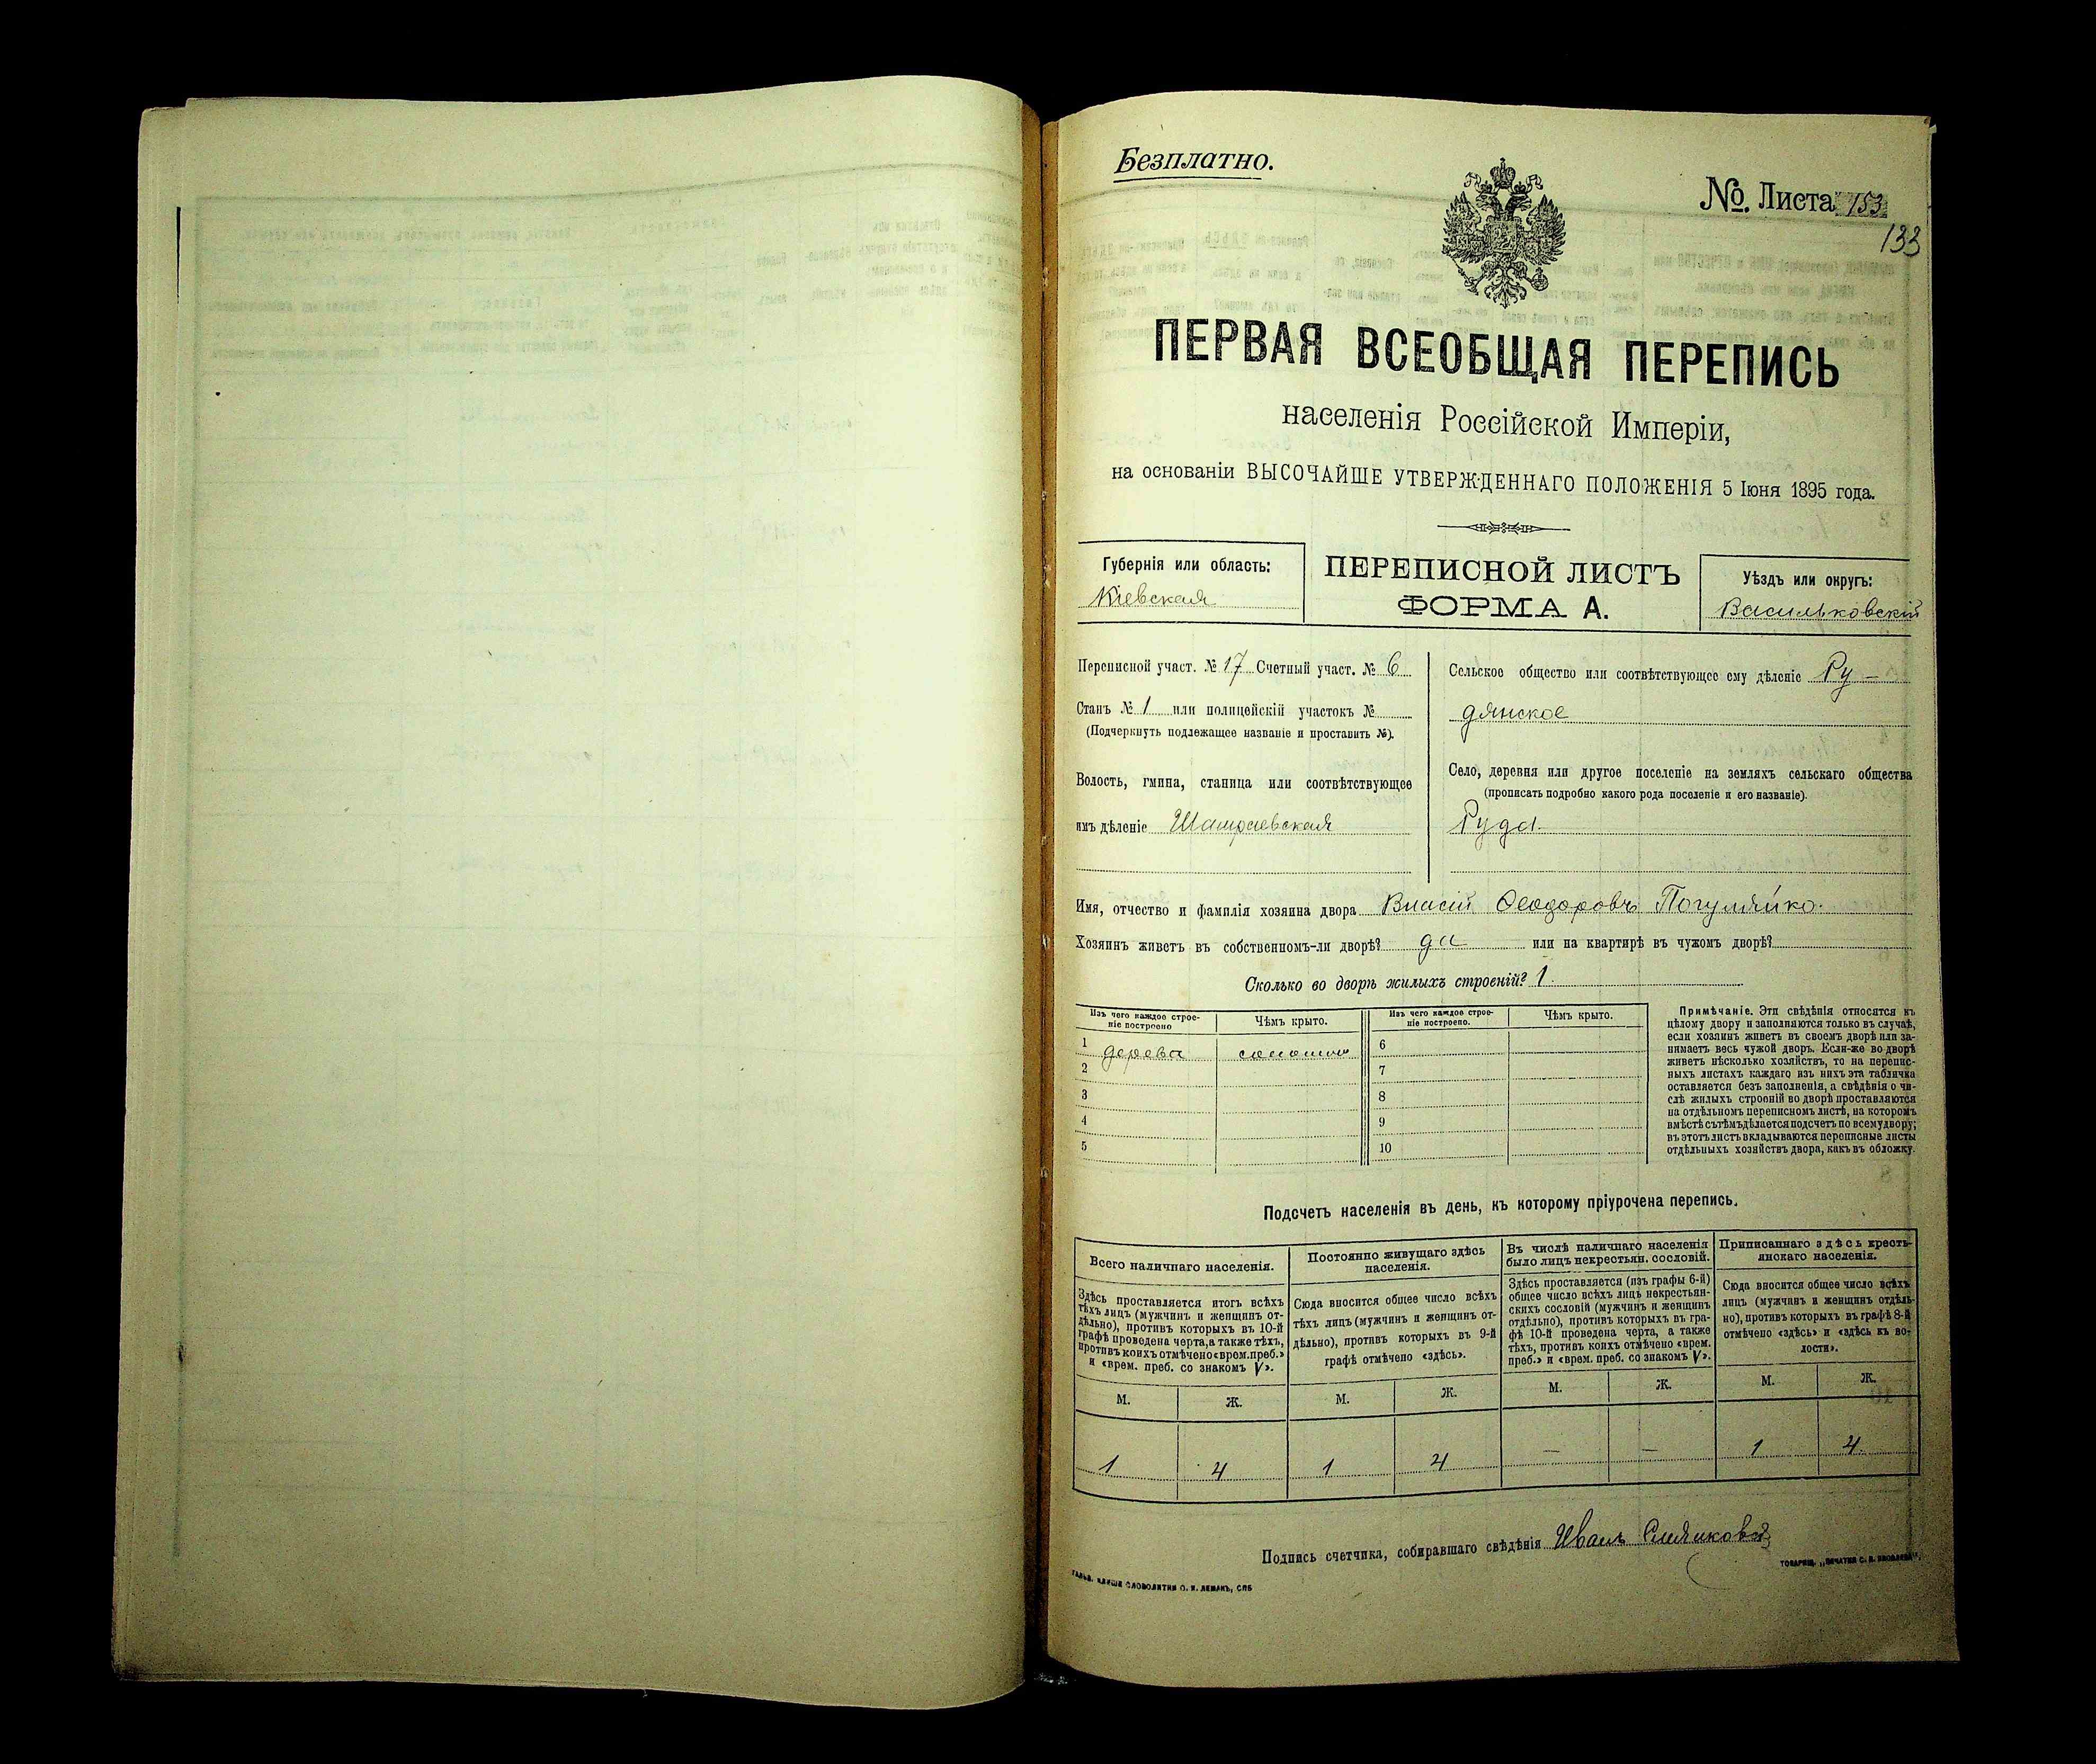 Безплатно.
№. Листа 153
133
ПЕРВАЯ ВСЕОБЩАЯ ПЕРЕПИСЬ
населенія Россійской Имперіи,
на основаніи ВЫСОЧАЙШЕ УТВЕРЖДЕННАГО ПОЛОЖЕНІЯ 5 Іюня 1895 года.
Губернія или область:
Кіевская
ПЕРЕПИСНОЙ ЛИСТЪ
ФОРМА А.
Уѣздъ или округъ:
Васильковскій
Переписной участ. № 17 Счетный участ. № 6
Станъ № 1 или полицейскій участокъ №
(Подчеркнуть подлежащее названіе и проставить №).
Волость, гмина, станица или соотвѣтствующее
имъ дѣленіе Шамраевская
Сельское общество или соотвѣтствующее ему дѣленіе Ру-
дянское
Село, деревня или другое поселеніе на земляхъ сельскаго общества
(прописать подробно какого рода поселеніе и его названіе).
Руда
Имя, отчество и фамилія хозяина двора Власій Ѳеодоровъ Погуляйко.
Хозяинъ живетъ въ собственномъ-ли дворѣ? да или на квартирѣ въ чужомъ дворѣ?
Сколько во дворѣ жилыхъ строеній? 1.
Изъ чего каждое строе-
ніе построено
Чѣмъ крыто.
Изъ чего каждое строе-
ніе построено.
Чѣмъ крыто.
1 дерева соломою
2
3
4
5
6
7
8
9
10
Примѣчаніе. Эти свѣдѣнія относятся къ
цѣлому двору и заполняются только въ случаѣ,
если хозяинъ живетъ въ своемъ дворѣ или за-
нимаетъ весь чужой дворъ. Если-же во дворѣ
живетъ нѣсколько хозяйствъ, то на перепис-
ныхъ листахъ каждаго изъ нихъ эта табличка
оставляется безъ заполненія, а свѣдѣнія о чи-
слѣ жилыхъ строеній во дворѣ проставляются
на отдѣльномъ переписномъ листѣ, на которомъ
вмѣстѣ съ тѣмъ дѣлается подсчетъ по всему двору;
въ этотъ листъ вкладываются переписные листы
отдѣльныхъ хозяйствъ двора, какъ въ обложку.
Подсчетъ населенія въ день, къ которому пріурочена перепись.
Всего наличнаго населенія.
Здѣсь проставляется итогъ всѣхъ
тѣхъ лицъ (мужчинъ и женщинъ от-
дѣльно), противъ которыхъ въ 10-й
графѣ проведена черта, а также тѣхъ,
противъ коихъ отмѣчено «врем. преб.»
и «врем. преб. со знакомъ V».
Постоянно живущаго здѣсь
населенія.
Сюда вносится общее число всѣхъ
тѣхъ лицъ (мужчинъ и женщинъ от-
дѣльно), противъ которыхъ въ 9-й
графѣ отмѣчено «здѣсь».
Въ числѣ наличнаго населенія
было лицъ некрестьян. сословій.
Здѣсь проставляется (изъ графы 6-й)
общее число всѣхъ лицъ некрестьян-
скихъ сословій (мужчинъ и женщинъ
отдѣльно), противъ которыхъ въ гра-
фѣ 10-й проведена черта, а также
тѣхъ, противъ коихъ отмѣчено «врем.
преб.» и «врем. преб. со знакомъ V».
Приписаннаго здѣсь кресть-
янскаго населенія.
Сюда вносится общее число всѣхъ
лицъ (мужчинъ и женщинъ отдѣль-
но), противъ которыхъ въ графѣ 8-й
отмѣчено «здѣсь» и «здѣсь къ во-
лости».
М. Ж. М. Ж. М. Ж. М. Ж.
1 4 1 4 — — 1 4
Подпись счетчика, собиравшаго свѣдѣнія Иванъ
ГАЛЬВ. КЛИШЕ СЛОВОЛИТНИ О. И. ЛЕМАНЪ, СПБ
ТОВАРИЩ. „ПЕЧАТНЯ С. П. ЯКОВЛЕВА“.